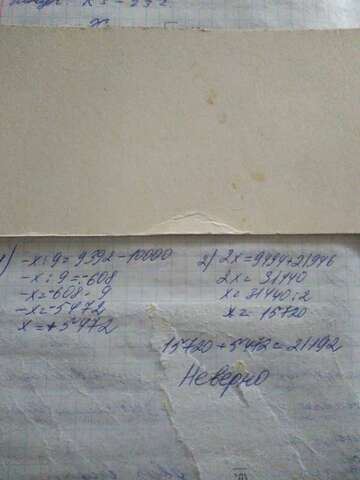 1) -x:9=9392-10000
-x:9=-608
-x=-608·9
-x=-5472
x=+5472
2) 2x=9494+21946
2x=31440
x=31440:2
x=15720
15720+5472=21192
Неверно